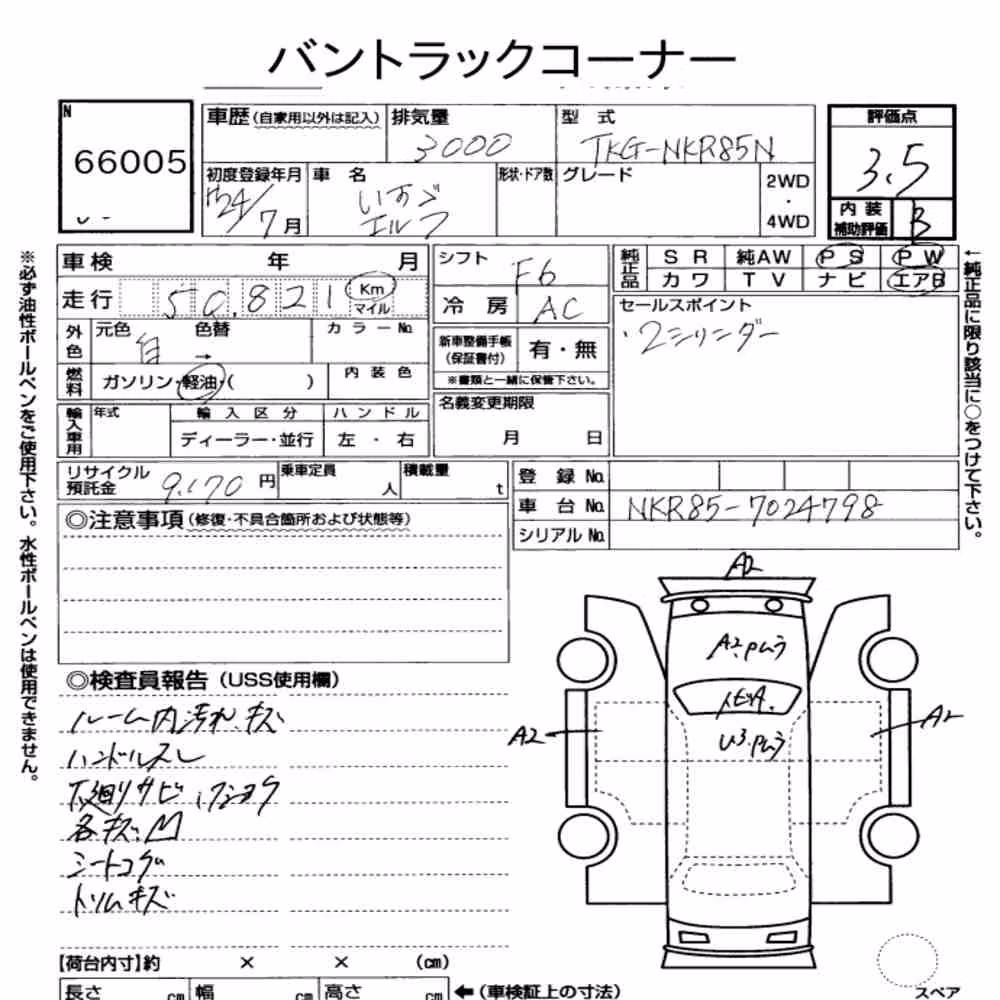 バントラックコーナー
N
66005
車歴(自家用以外は記入) 排気量 型 式 評価点
3000 TKG-NKR85N 3.5
初度登録年月 車 名 形状・ドア数 グレード 2WD・4WD
H24/7月 いすゞ エルフ
内装補助評価 B
車検 年 月 シフト F6
純正品 SR 純AW PS PW
カワ TV ナビ エアB
走行 50,821 Km マイル 冷房 AC
セールスポイント
・2シリンダー
外色 元色 色替 カラーNo.
白 →
新車整備手帳(保証書付) 有・無
※書類と一緒に保管下さい。
燃料 ガソリン・軽油・( ) 内装色
名義変更期限
月 日
輸入車用 年式 輸入区分 ハンドル
ディーラー・並行 左・右
リサイクル預託金 9,170円 乗車定員 人 積載量 t
登録No.
車台No. NKR85-7024798
シリアルNo.
※必ず油性ボールペンをご使用下さい。水性ボールペンは使用できません。
←純正品に限り該当に○をつけて下さい。
◎注意事項(修復・不具合箇所および状態等)
◎検査員報告(USS使用欄)
ルーム内汚れ、キズ
ハンドルスレ
下廻りサビ
各キズ、凹
シートコゲ
トリムキズ
A2
A2.Pムラ
トビA.
U3.Pムラ
A2
A2
【荷台内寸】約 × × (cm)
長さ cm 幅 cm 高さ cm ←(車検証上の寸法)
スペア